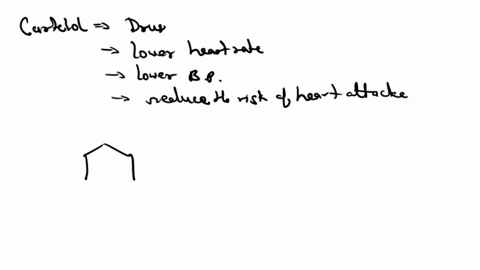 ⇒ Drug
→ lower heart rate
→ lower B.P.
→ reduce the risk of heart attacke